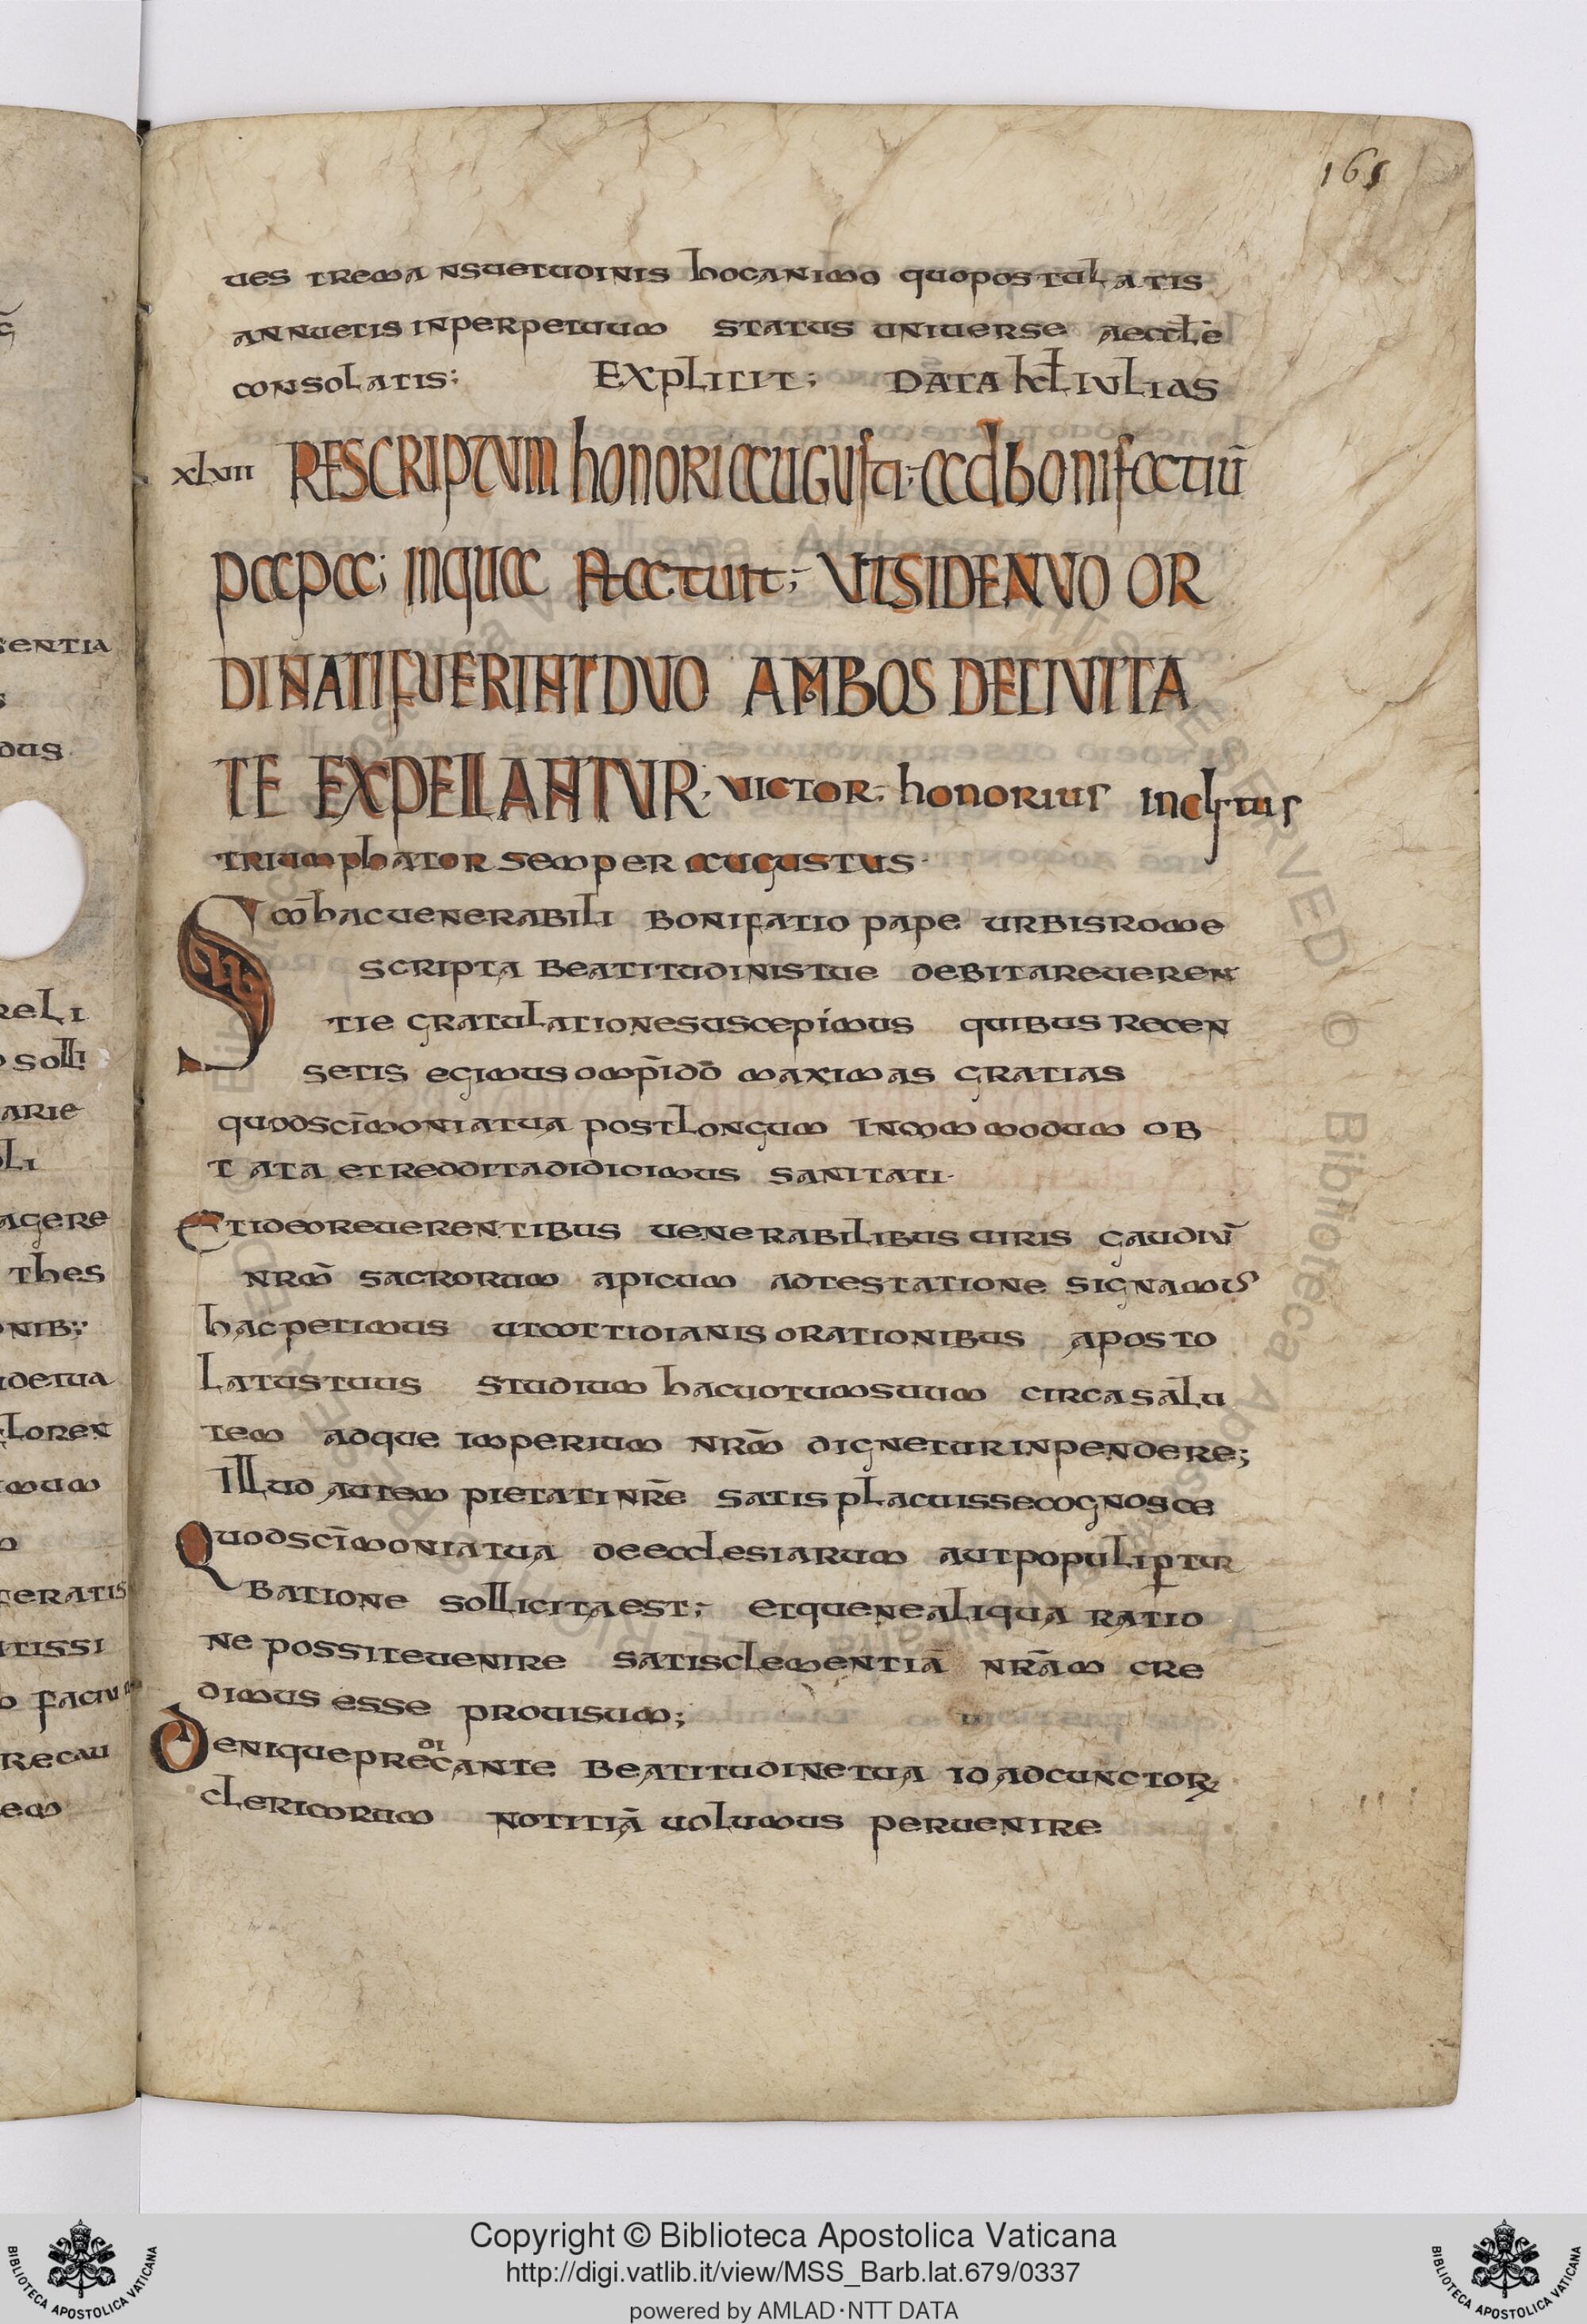 161
ues tremansuetudinis hocanimo quopostulatis
annuetis inperpetuum status uniuerse aeccłe
consolatis; Explicit; Data kł iulias
xlvii Rescriptum honori augusti; ad bonifatiū
papa; inqua statuit; ut si denuo or
dinati fuerint duo ambos de civita
te expellantur; victor; honorius inclytus
triumphator semper augustus
Scōhacuenerabili bonifatio pape urbisrome
scripta beatitudinistue debitareueren
tie gratulationesuscepimus quibus recen
setis egimus omp̄idō maximas gratias
quodscīmoniatua postlongum incommodum ob
tata etredditadidicimus sanitati
Etideoreuerentibus uenerabilibus uiris gaudiū
nrm̄ sacrorum apicum adtestatione signamus
hacpetimus utcottidianis orationibus aposto
latustuus studium hacuotumsuum circasalu
tem adque imperium nrm̄ digneturinpendere;
Illud autem pietatinr̄e satis placuissecognosce
Quodscīmoniatua deecclesiarum autpopulip̱tur
batione sollicitaest; etquenealiqua ratio
ne possiteuenire satisclementiā nrām cre
dimus esse prouisum;
di
Deniqueprecante beatitudinetua id adcunctoꝝ
clericorum notitiā uolumus peruenire
sentia
dus
reli
solli
arie
oli
agere
thes
onib;
idetua
floren
imum
teratis
itissi
faciu
recau
em
Copyright © Biblioteca Apostolica Vaticana
http://digi.vatlib.it/view/MSS_Barb.lat.679/0337
powered by AMLAD·NTT DATA
BIBLIOTECA APOSTOLICA VATICANA
BIBLIOTECA APOSTOLICA VATICANA